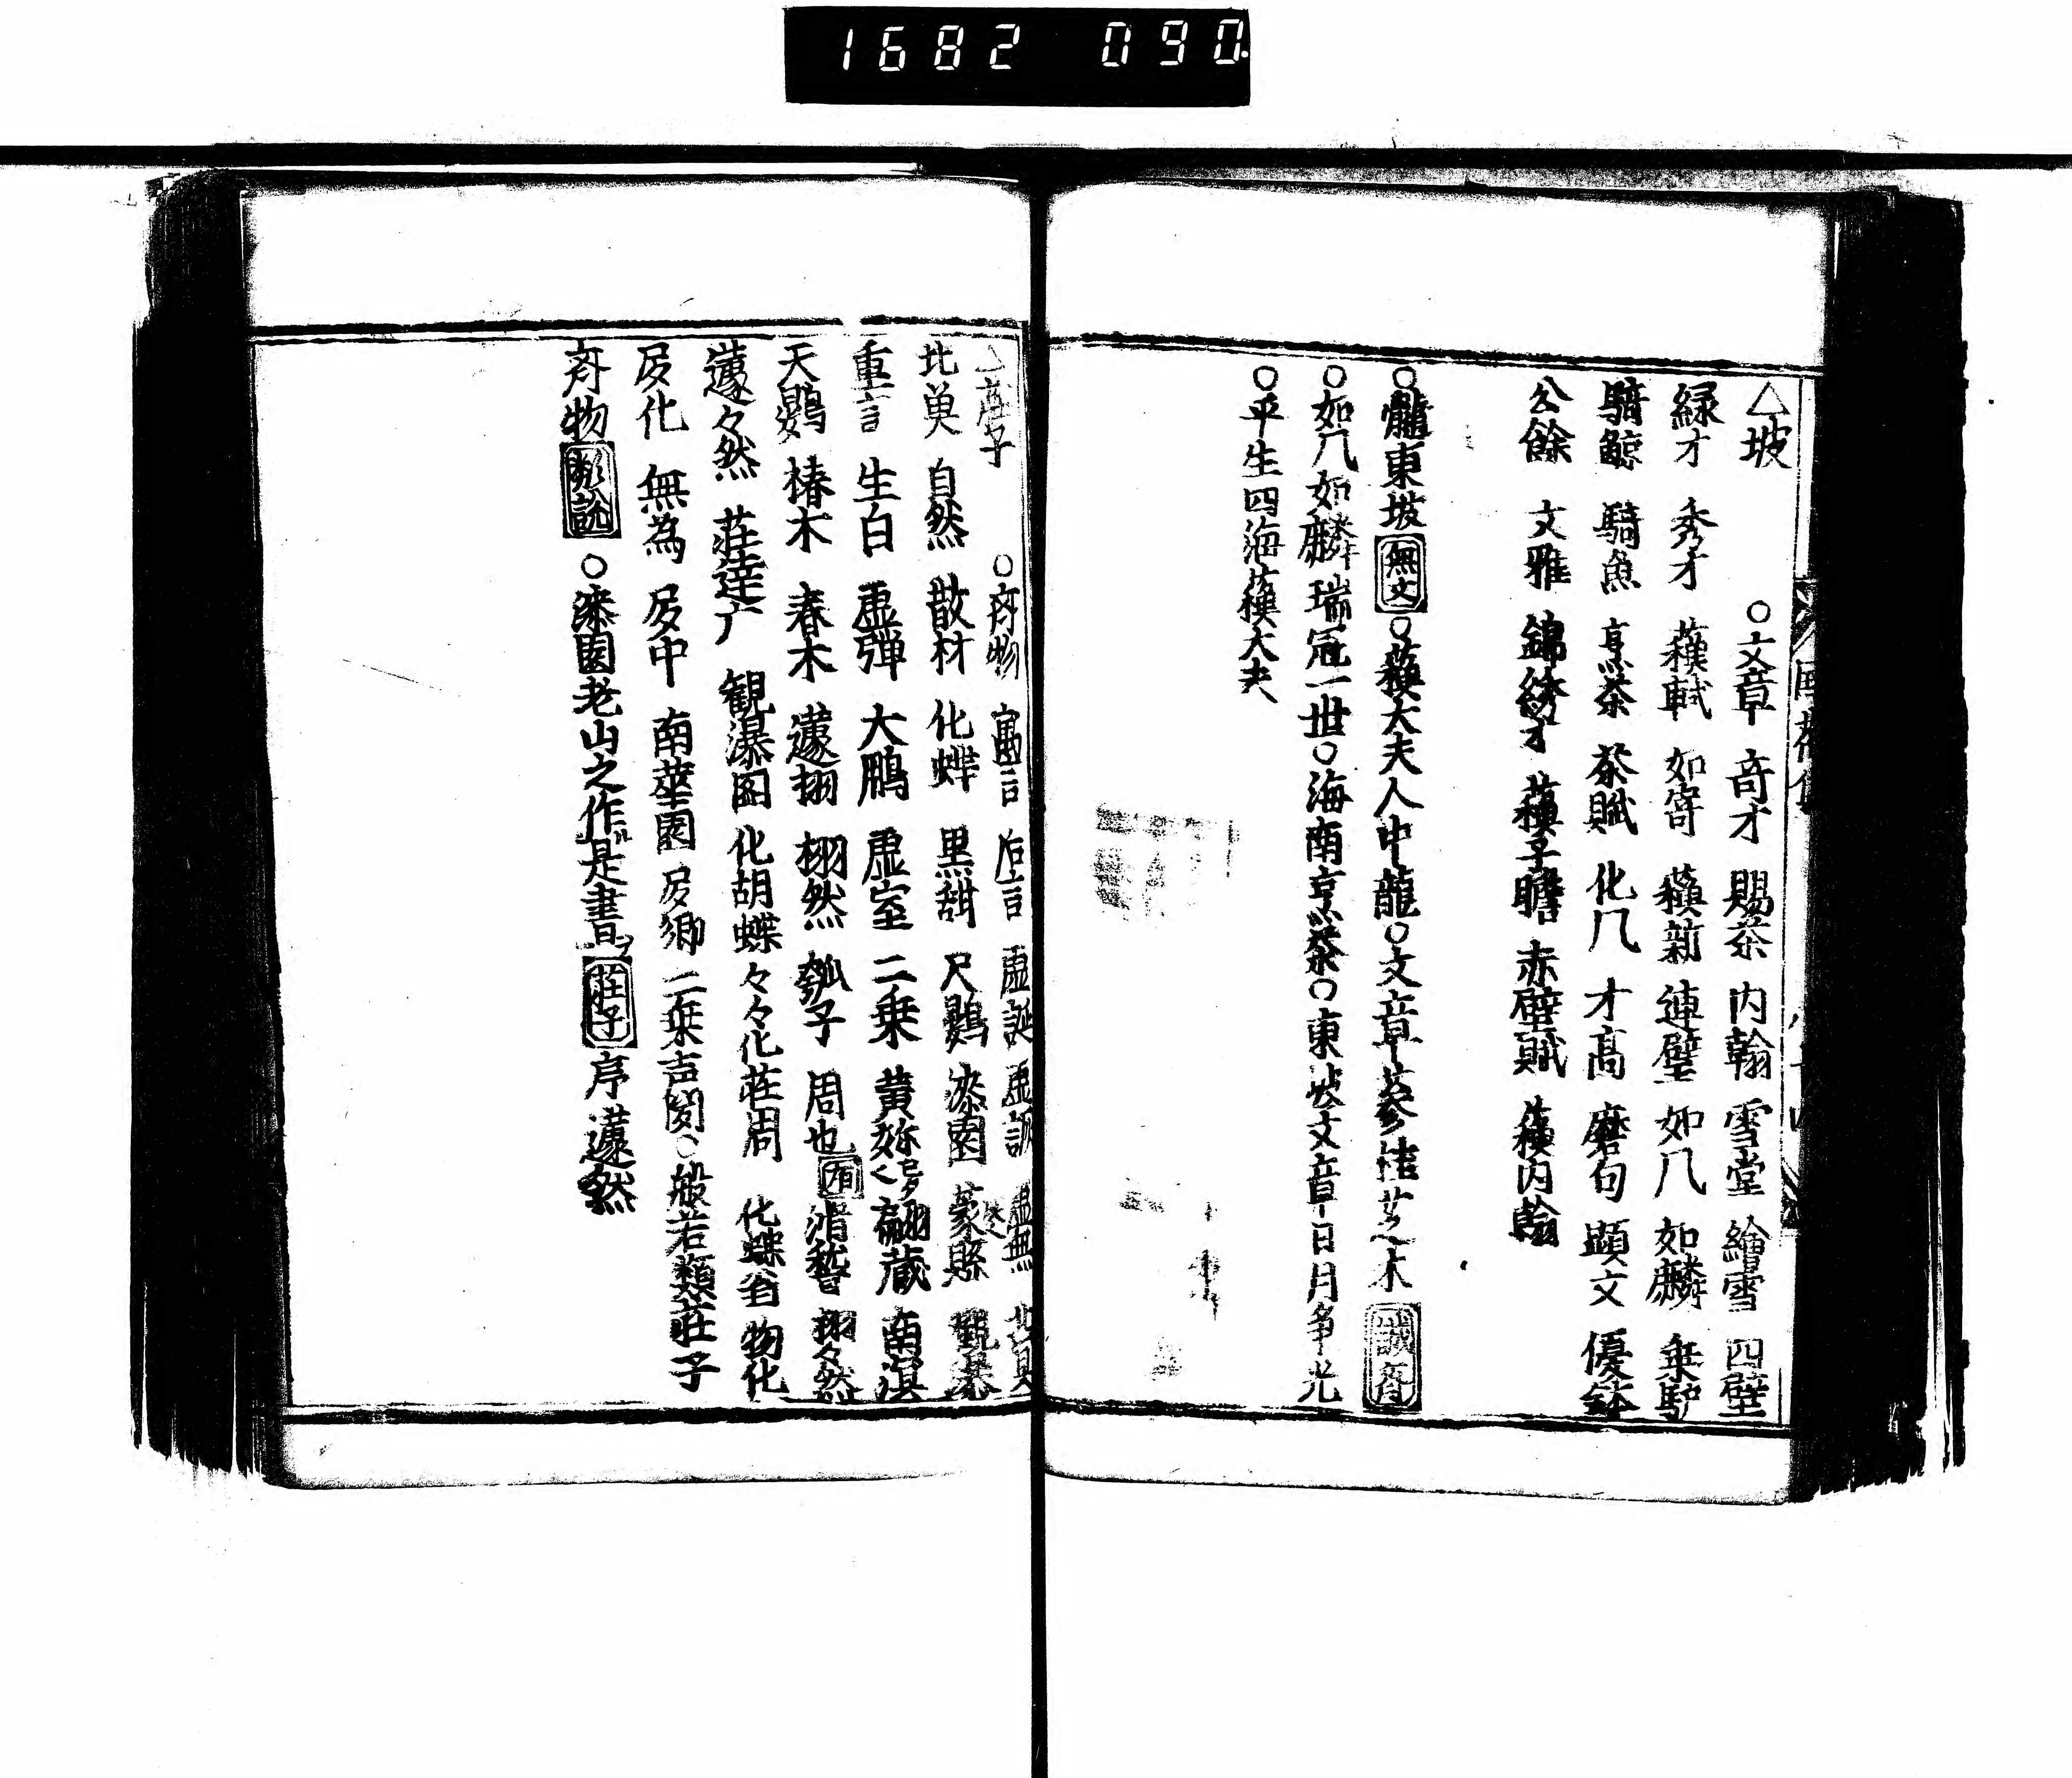 1682 090
△坡 ○文章 奇才 賜茶 内翰 雪堂 繪雪 四壁
緑才 秀才 蘓軾 如寄 蘓新 連璧 如凡 如麟 乗馿
騎鯨 騎魚 烹茶 茶賦 化凡 才高 磨句 顕文 優鉢
公餘 文雅 錦綉才 蘓子瞻 赤壁賦 蘓内翰
○龍東坡 無文 ○蘓大夫人中龍○文章蓼 芝木 誠斎
○如凡如麟瑞冠一世○海南烹茶○東坡文章日月争光
○平生四海蘓大夫
△庄子 ○斉物 寓言 卮言 虚誕 虚誠 虚無
北 自然 散材 化蝶 黒甜 尺鷃 漆園 蒙縣 観
重言 生白 虚弾 大鵬 虚室 二乗 黄 蔵 南溟
天鷃 椿木 春木 蘧栩 栩然 瓠子 周也 滑稽 栩々然
蘧々然 荘逹广 観瀑図 化胡蝶 々々化荘周 化蝶翁 物化
叚化 無為 叚中 南華園 叚郷 二乗声聞○般若類荘子
斉物 ○漆園老山之作是書 荘子 序蘧然